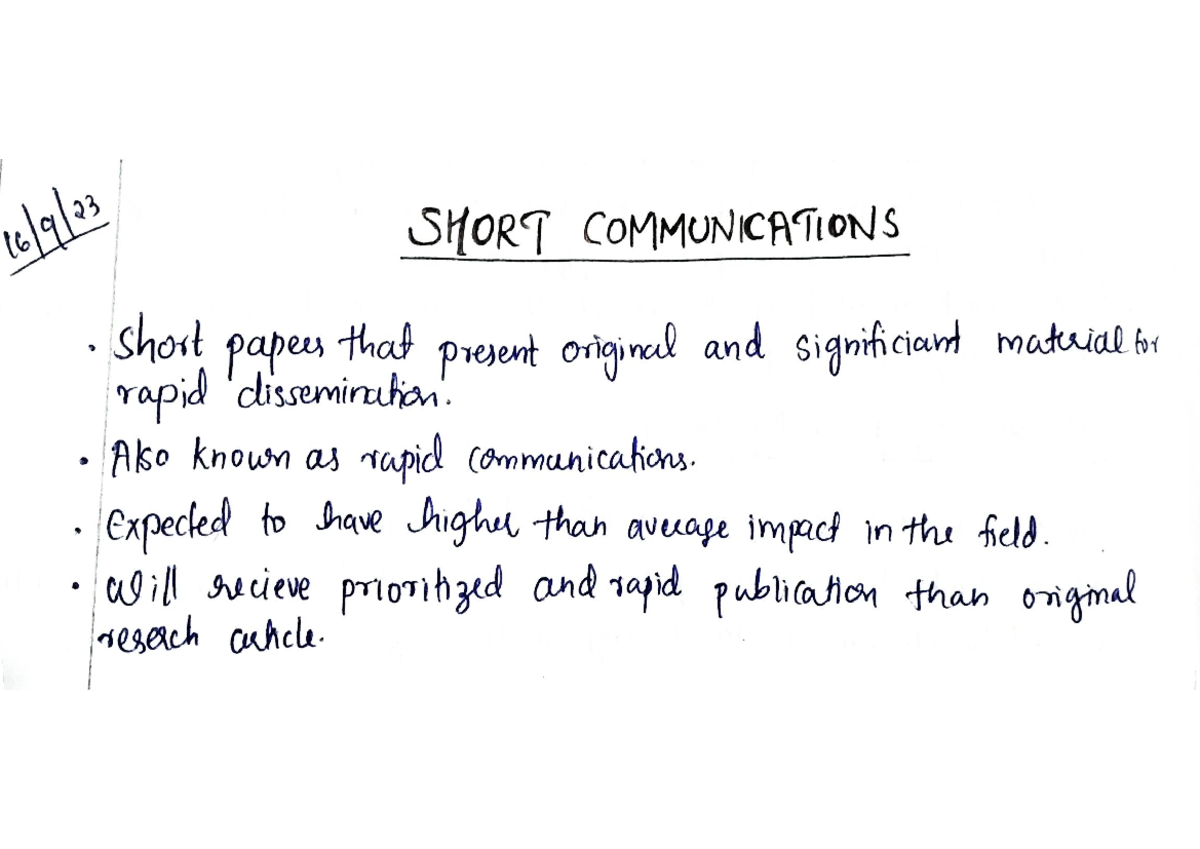 16/9/23
SHORT COMMUNICATIONS
• Short papers that present original and significiant material for
rapid dissemination.
• Also known as rapid communications.
• Expected to have higher than average impact in the field.
• Will recieve prioritized and rapid publication than original
reserch article.